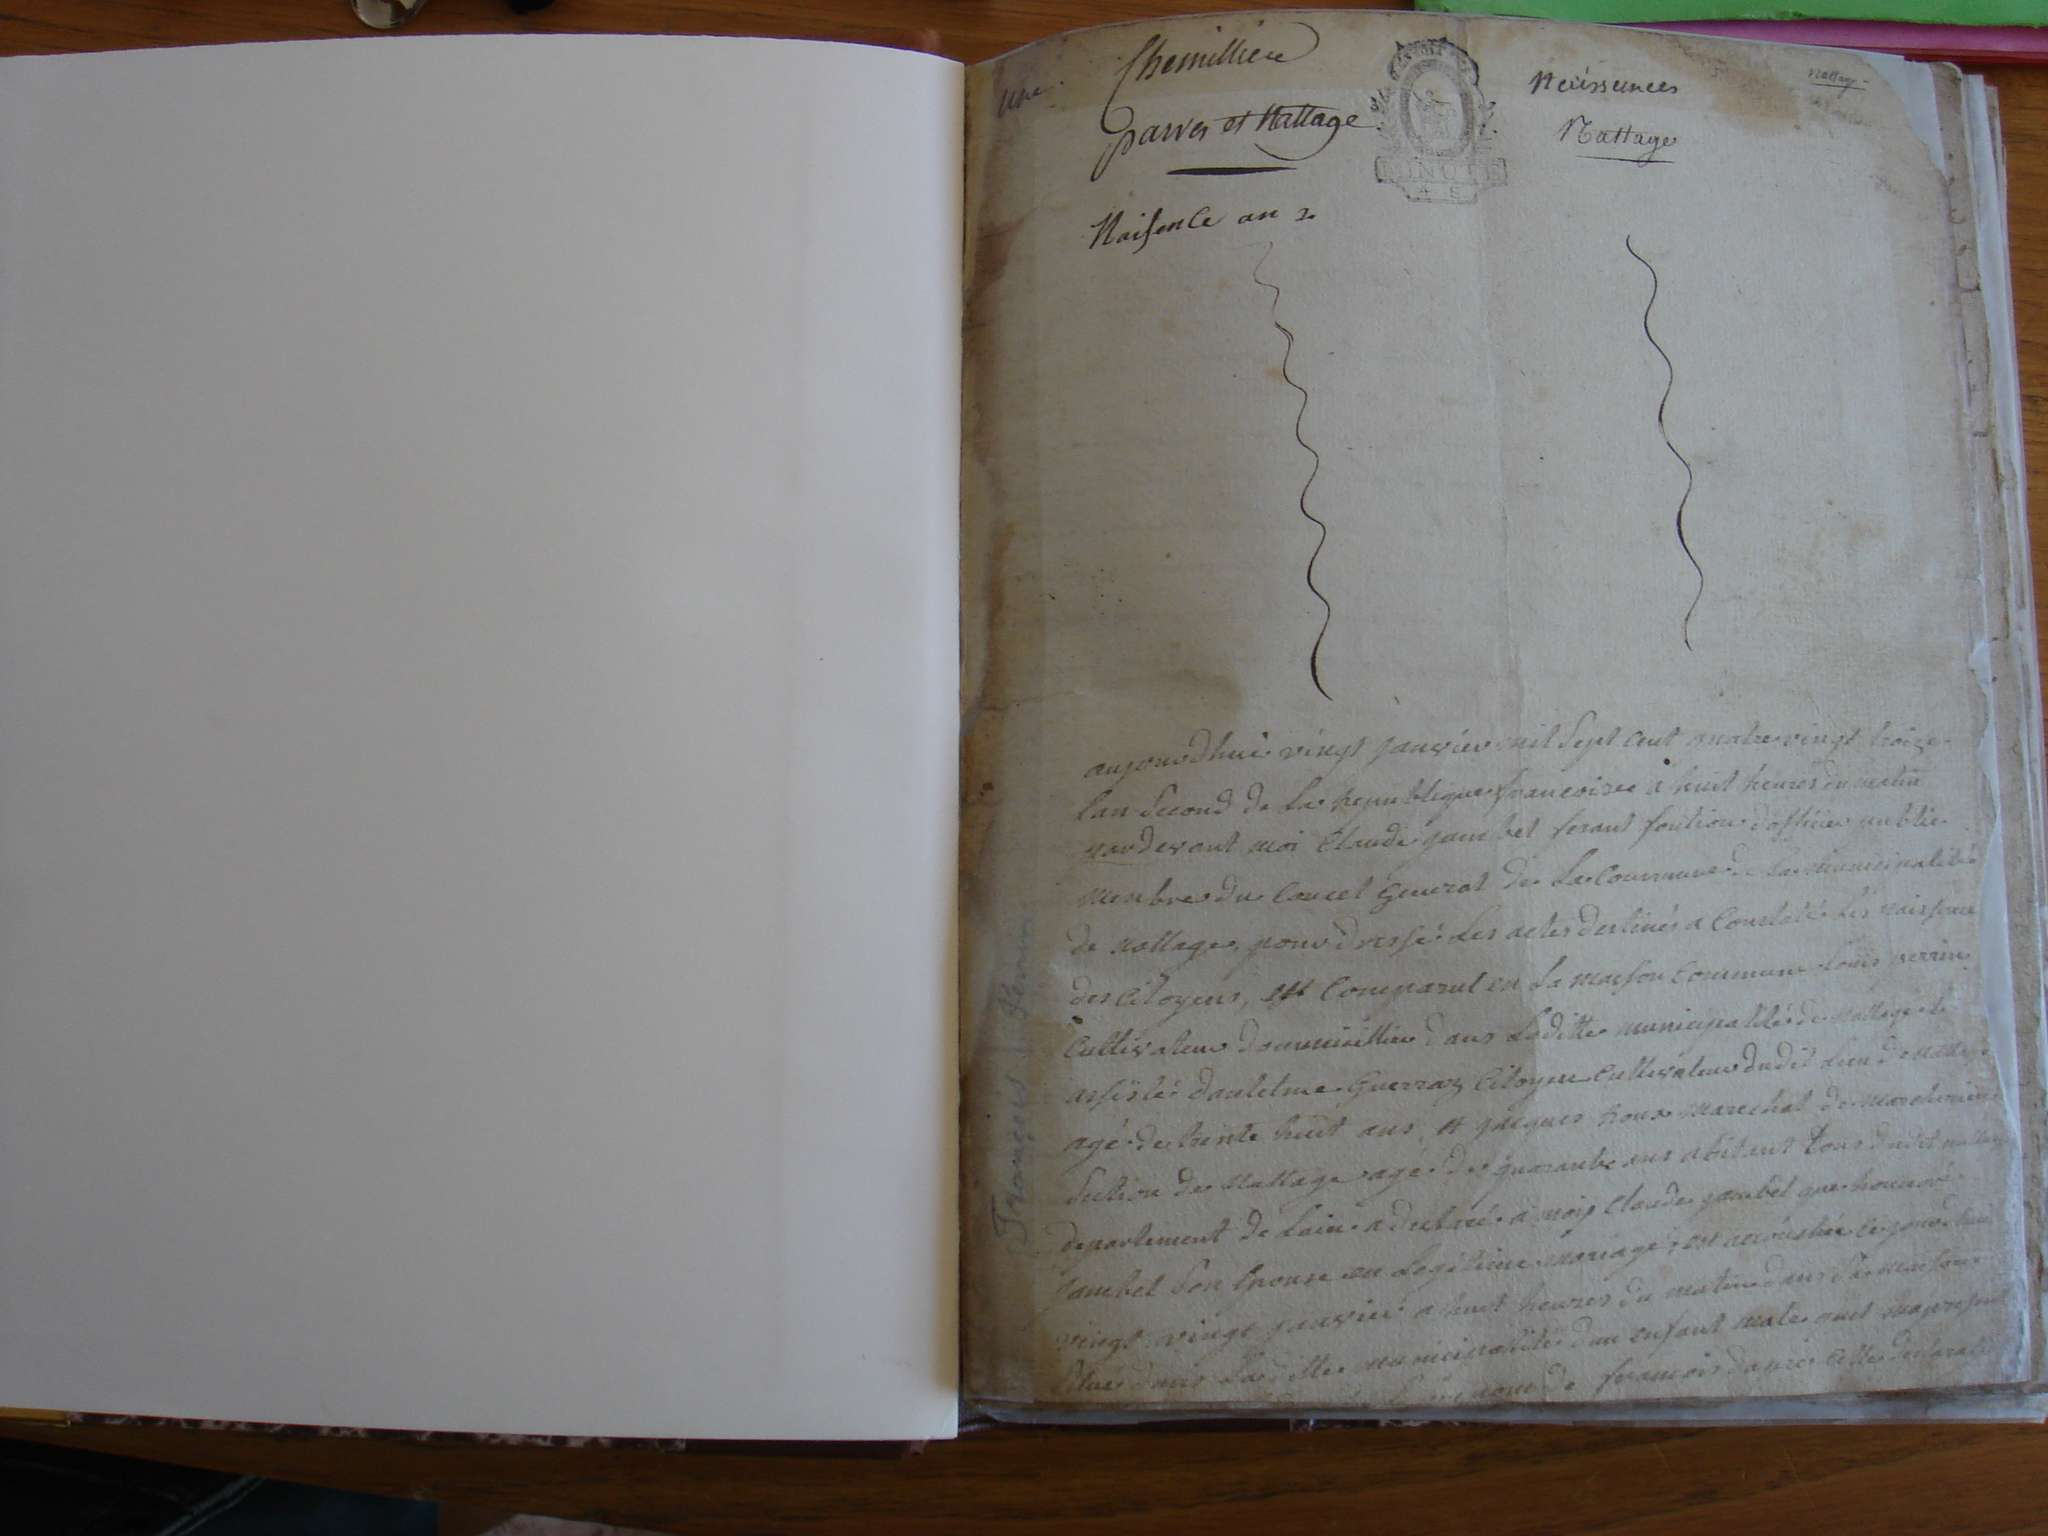 une
Chemilliere
parves et Nattage
Naissances
Nattage
Nattage
MINUTE
Naisence an 2
aujourdhui vingt janvier mil sept cent quatre vingt treize
lan second de la republique francoise a huit heures du matin
pardevant moi Claude jambet ferant fontion dofficier public
membre du Concel general de la Commune de la municipalité
de nattage, pour dressé les actes destinés a Constaté les naissance
des citoyens, est Comparut en la maison Commune louis perrin
Cultivateur domicillier dans laditte municipalité de nattage
assisté dantelme Guerraz Citoyen Cultivateur dudit lieu de nattage
agé de trente huit ans, et jacques roux marechal de
section de Nattage agé de quarante ans abitant tous dudit
departement de lain a declaré a moi Claude jambet que
jambet son epouse en legitime mariage, est accouchée ce jourdhui
vingt janvier a huit heures du matin dans sa maison
situé dans laditte municipalité dun enfant male quil ma presenté
prenom de francois dapre cette declaration
François Perrin